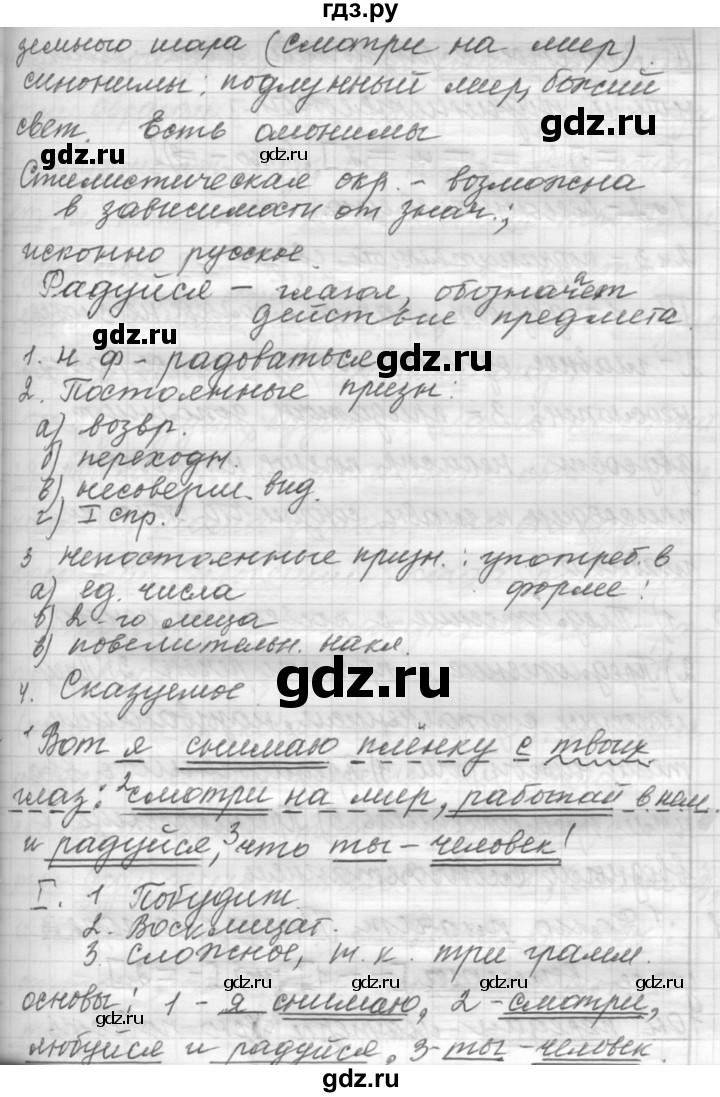 гдз.ру
земного шара (смотри на мир).
синонимы: подлунный мир, божий
свет. Есть омонимы
gdz.ru gdz.ru gdz.ru
Стилистическая окр. - возможна
в зависимости от знач.;
исконно русское.
Радуйся – глагол, обозначает
действие предмета.
gdz.ru
1. н ф - радоваться
gdz.ru
2. Постоянные призн:
а) возвр.
б) переходн.
gdz.ru gdz.ru
в) несоверш. вид.
г) I спр.
3 непостоянные призн.: употреб. в
форме:
а) ед. числа
в) 2-го лица
в) повелительн. накл.
4. Сказуемое
gdz.ru
1 Вот я снимаю плёнку с твоих
глаз: 2 смотри на мир, работай в нем
и радуйся, 3 что ты – человек!
I. 1 Побудит.
2. Восклицат.
3. Сложное, т. к. три грамм.
gdz.ru gdz.ru gdz.ru
основы: 1 - я снимаю, 2 - смотри,
любуйся и радуйся, 3 - ты - человек.
gdz.ru